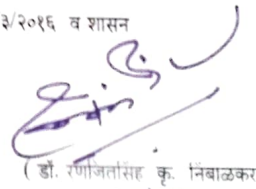 ३/२०१६ व शासन
( डॉ. रणजितसिंह कृ. निंबाळकर